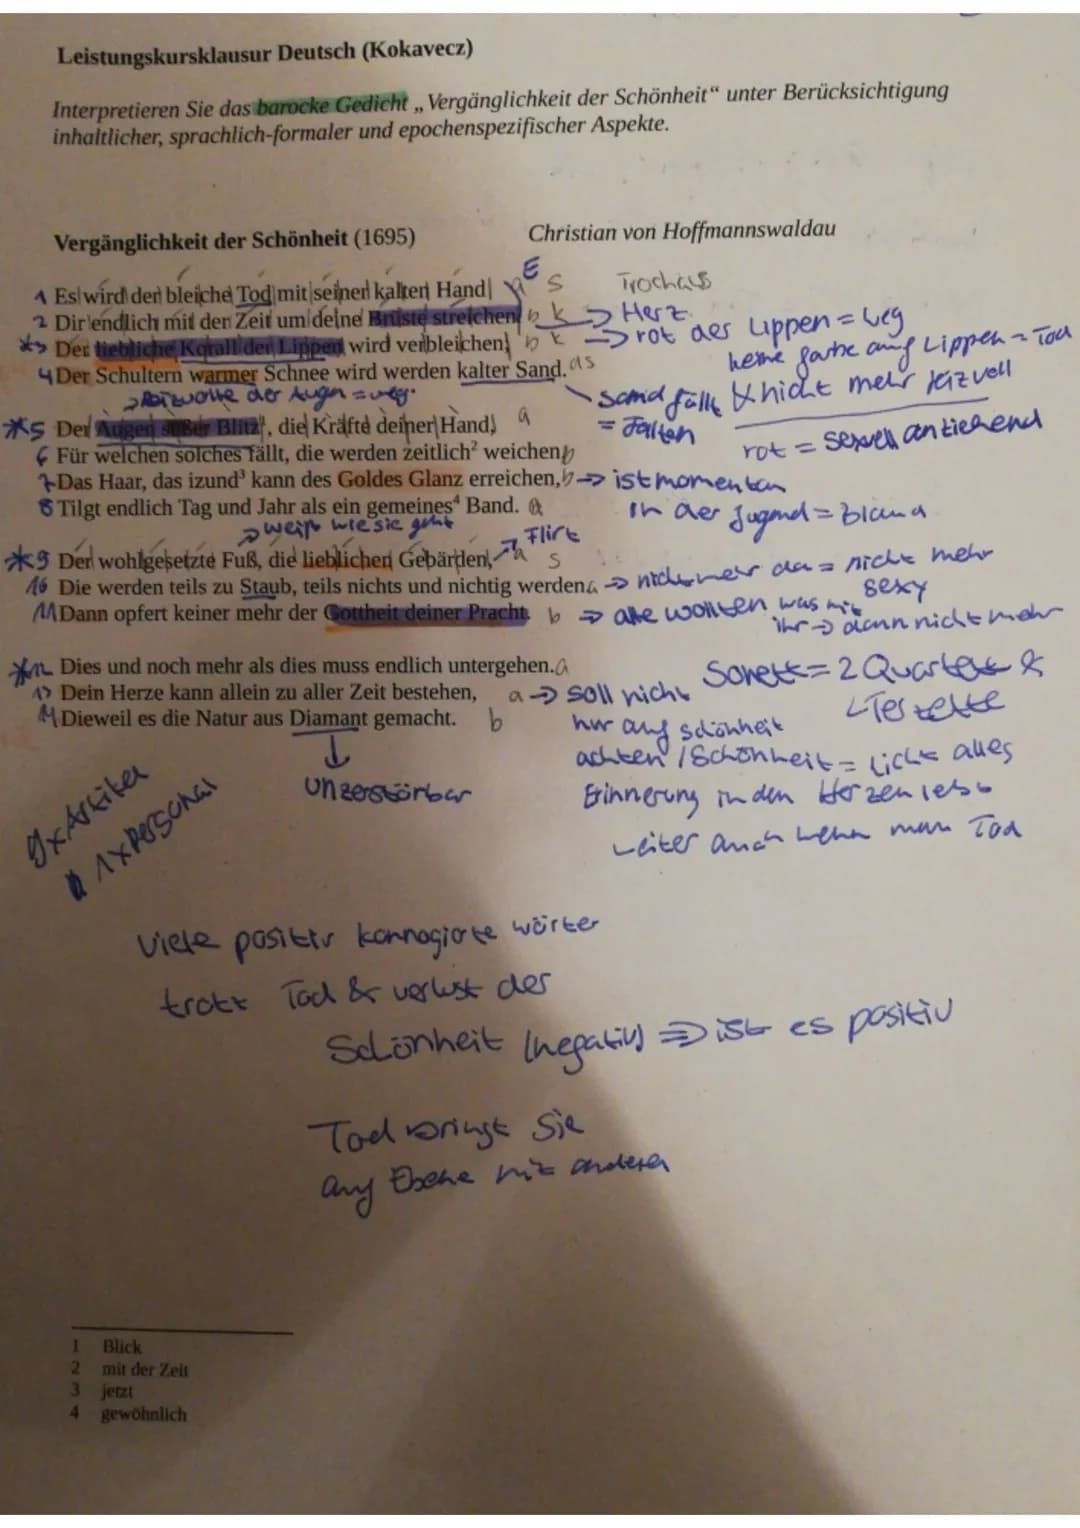 Leistungskursklausur Deutsch (Kokavecz)
Interpretieren Sie das barocke Gedicht „Vergänglichkeit der Schönheit“ unter Berücksichtigung
inhaltlicher, sprachlich-formaler und epochenspezifischer Aspekte.
Vergänglichkeit der Schönheit (1695) Christian von Hoffmannswaldau
1 Es wird der bleiche Tod mit seiner kalten Hand a E s Trochäus
2 Dir endlich mit der Zeit um deine Brüste streichen, b k => Herz
*3 Der liebliche Korall der Lippen wird verbleichen; b k -> rot der Lippen = weg
keine farbe auf Lippen = Tod
4 Der Schultern warmer Schnee wird werden kalter Sand. a s
& nicht mehr reizvoll
Sand fällt
= Falten
rot = sexuell anziehend
-> Reizvolle der Augen = weg.
*5 Der Augen süßer Blitz¹, die Kräfte deiner Hand, a
6 Für welchen solches fällt, die werden zeitlich² weichen, b
7 Das Haar, das izund³ kann des Goldes Glanz erreichen, b -> ist momentan
in der Jugend = blond
8 Tilgt endlich Tag und Jahr als ein gemeines⁴ Band. a
-> weiß wie sie geht
-> Flirt
*9 Der wohlgesetzte Fuß, die lieblichen Gebärden, a s
10 Die werden teils zu Staub, teils nichts und nichtig werden, a -> nichts mehr da = nicht mehr
sexy
11 Dann opfert keiner mehr der Gottheit deiner Pracht. b => alle wollten was mit
ihr -> dann nicht mehr
*12 Dies und noch mehr als dies muss endlich untergehen. a
Sonett = 2 Quartett &
Terzette
13 Dein Herze kann allein zu aller Zeit bestehen, a -> soll nicht
14 Dieweil es die Natur aus Diamant gemacht. b
nur auf schönheit
achten / Schönheit = nicht alles
unzerstörbar
Erinnerung in den Herzen lebt
weiter auch wenn man Tod
9x Artikel
1x Personal
Viele positiv konnogierte wörter
trotz Tod & verlust der
Schönheit (negativ) => ist es positiv
Tod bringt Sie
auf Ebene mit anderen
1 Blick
2 mit der Zeit
3 jetzt
4 gewöhnlich